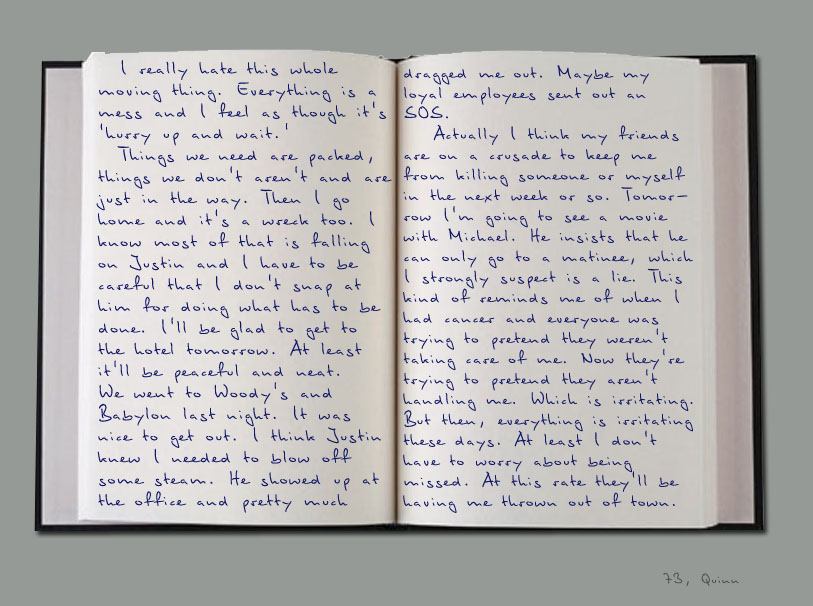 I really hate this whole
moving thing. Everything is a
mess and I feel as though it's
'hurry up and wait.'
Things we need are packed,
things we don't aren't and are
just in the way. Then I go
home and it's a wreck too. I
know most of that is falling
on Justin and I have to be
careful that I don't snap at
him for doing what has to be
done. I'll be glad to get to
the hotel tomorrow. At least
it'll be peaceful and neat.
We went to Woody's and
Babylon last night. It was
nice to get out. I think Justin
knew I needed to blow off
some steam. He showed up at
the office and pretty much
dragged me out. Maybe my
loyal employees sent out an
SOS.
Actually I think my friends
are on a crusade to keep me
from killing someone or myself
in the next week or so. Tomor-
row I'm going to see a movie
with Michael. He insists that he
can only go to a matinee, which
I strongly suspect is a lie. This
kind of reminds me of when I
had cancer and everyone was
trying to pretend they weren't
taking care of me. Now they're
trying to pretend they aren't
handling me. Which is irritating.
But then, everything is irritating
these days. At least I don't
have to worry about being
missed. At this rate they'll be
having me thrown out of town.
73, Quinn